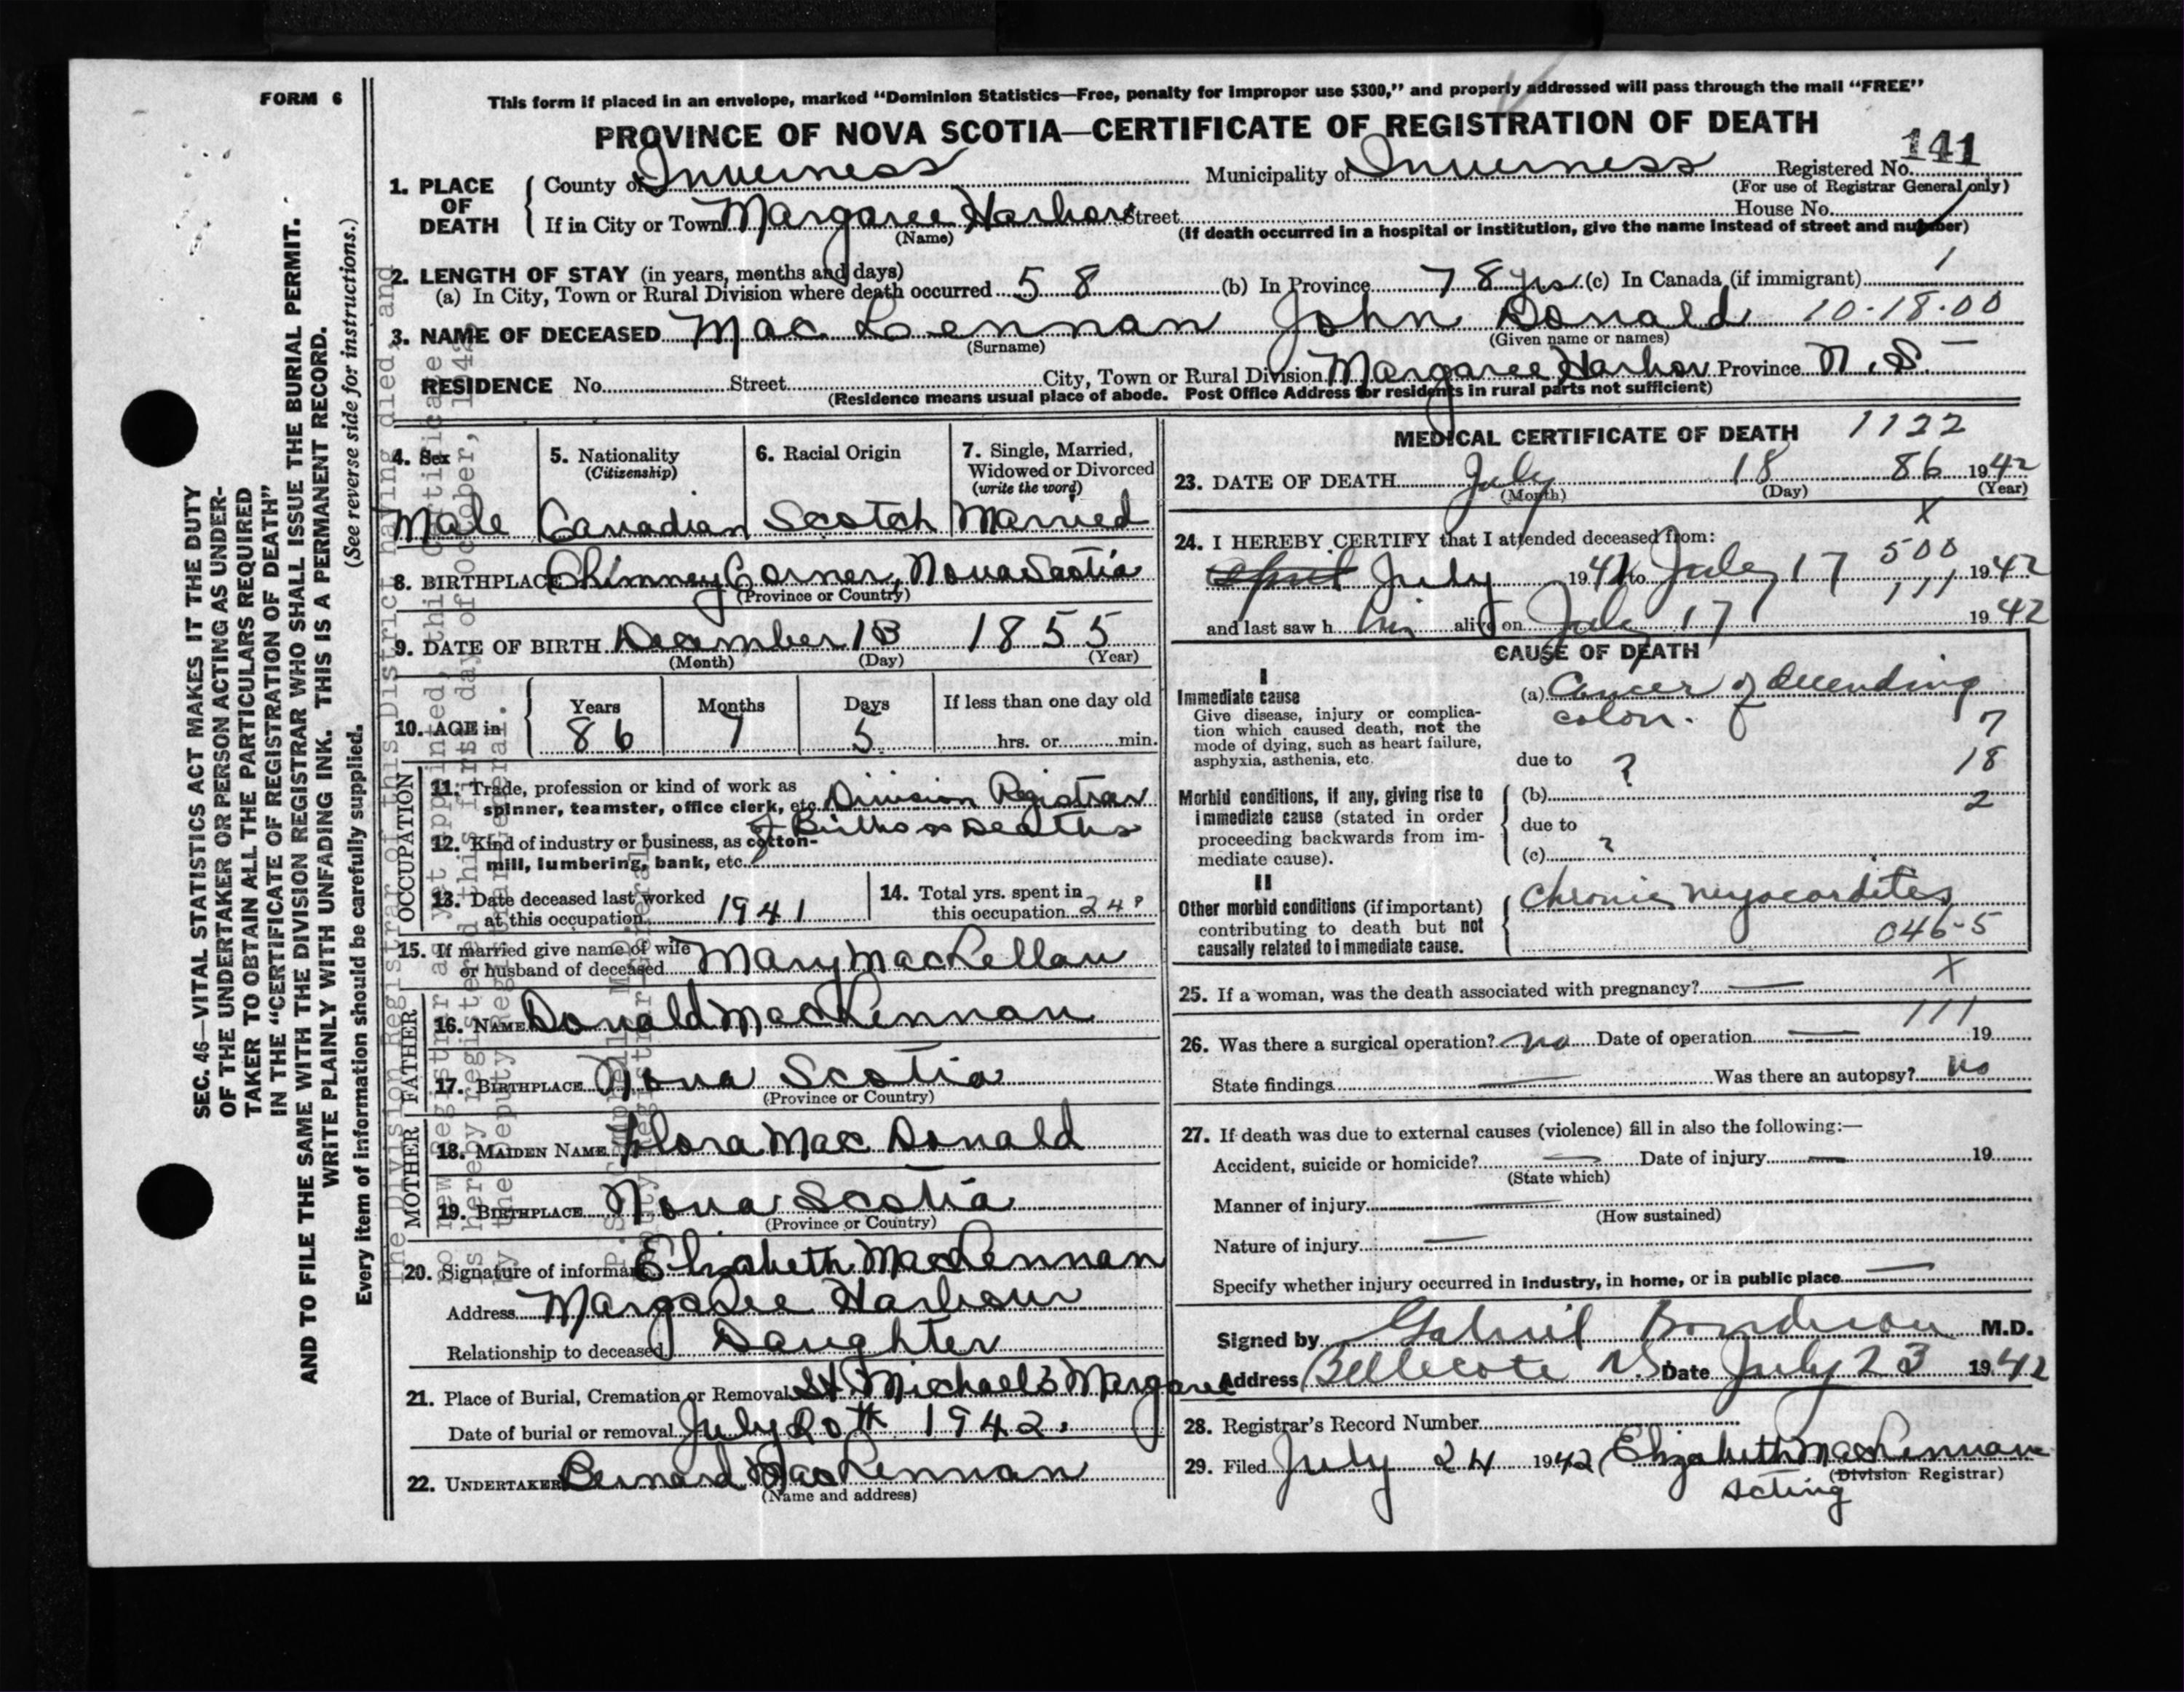 FORM 6
This form if placed in an envelope, marked "Dominion Statistics—Free, penalty for improper use $300," and properly addressed will pass through the mail "FREE"
PROVINCE OF NOVA SCOTIA—CERTIFICATE OF REGISTRATION OF DEATH
141
1. PLACE OF DEATH
County of Inverness Municipality of Inverness Registered No.
(For use of Registrar General only)
If in City or Town Margaree Harbor Street House No.
(Name) (If death occurred in a hospital or institution, give the name instead of street and number)
2. LENGTH OF STAY (in years, months and days)
(a) In City, Town or Rural Division where death occurred 58 (b) In Province 78 yrs (c) In Canada (if immigrant) 1
3. NAME OF DECEASED Mac Lennan John Donald 10-18-00
(Surname) (Given name or names)
RESIDENCE No. Street City, Town or Rural Division Margaree Harbor Province N. S.
(Residence means usual place of abode. Post Office Address for residents in rural parts not sufficient)
4. Sex 5. Nationality (Citizenship) 6. Racial Origin 7. Single, Married, Widowed or Divorced (write the word)
Male Canadian Scotch Married
8. BIRTHPLACE Chimney Corner, Nova Scotia
(Province or Country)
9. DATE OF BIRTH December 13 1855
(Month) (Day) (Year)
10. AGE in Years Months Days If less than one day old
86 7 5 hrs. or min.
OCCUPATION
11. Trade, profession or kind of work as spinner, teamster, office clerk, etc. Division Registrar
of Births & Deaths
12. Kind of industry or business, as cotton-mill, lumbering, bank, etc.
13. Date deceased last worked at this occupation 1941
14. Total yrs. spent in this occupation 24?
15. If married give name of wife or husband of deceased Mary MacLellan
FATHER
16. NAME Donald MacLennan
17. BIRTHPLACE Nova Scotia
(Province or Country)
MOTHER
18. MAIDEN NAME Flora Mac Donald
19. BIRTHPLACE Nova Scotia
(Province or Country)
20. Signature of informant Elizabeth MacLennan
Address Margaree Harbour
Relationship to deceased Daughter
21. Place of Burial, Cremation or Removal St. Michael's Margaree
Date of burial or removal July 20th 1942.
22. UNDERTAKER Bernard MacLennan
(Name and address)
MEDICAL CERTIFICATE OF DEATH 1122
23. DATE OF DEATH July 18 86 1942
(Month) (Day) (Year)
X
24. I HEREBY CERTIFY that I attended deceased from:
500
April July 1941 to July 17 1942
111
and last saw h im alive on July 17 1942
CAUSE OF DEATH
I
Immediate cause
Give disease, injury or complication which caused death, not the mode of dying, such as heart failure, asphyxia, asthenia, etc.
(a) Cancer of decending
colon. 7
due to ? 18
Morbid conditions, if any, giving rise to immediate cause (stated in order proceeding backwards from immediate cause).
(b) 2
due to
(c) ?
II
Other morbid conditions (if important) contributing to death but not causally related to immediate cause.
Chronic myocardites
046-5
X
25. If a woman, was the death associated with pregnancy? —
111
26. Was there a surgical operation? no Date of operation — 19
State findings — Was there an autopsy? no
27. If death was due to external causes (violence) fill in also the following:—
Accident, suicide or homicide? — Date of injury — 19
(State which)
Manner of injury —
(How sustained)
Nature of injury —
Specify whether injury occurred in industry, in home, or in public place —
Signed by Gabriel M.D.
Address Bellecote N.S. Date July 23 1942
28. Registrar's Record Number
29. Filed July 24 1942 Elizabeth MacLennan
(Division Registrar)
Acting
SEC. 46—VITAL STATISTICS ACT MAKES IT THE DUTY
OF THE UNDERTAKER OR PERSON ACTING AS UNDER-
TAKER TO OBTAIN ALL THE PARTICULARS REQUIRED
IN THE "CERTIFICATE OF REGISTRATION OF DEATH"
AND TO FILE THE SAME WITH THE DIVISION REGISTRAR WHO SHALL ISSUE THE BURIAL PERMIT.
WRITE PLAINLY WITH UNFADING INK. THIS IS A PERMANENT RECORD.
(See reverse side for instructions.)
Every item of information should be carefully supplied.
The Division Registrar of this District having died, and